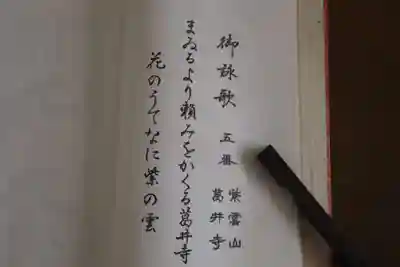 御詠歌 五番 紫雲山 葛井寺
まゐるより頼みをかくる葛井寺
花のうてなに紫の雲